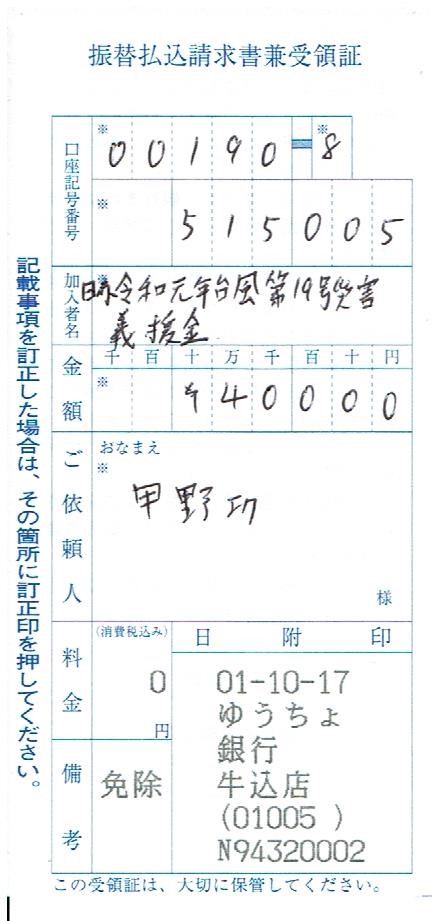 振替払込請求書兼受領証
口座記号番号
※ 00190-※8
※ 515005
加入者名
※
日赤令和元年台風第19号災害
義援金
金額
千 百 十 万 千 百 十 円
※ ¥40000
ご依頼人
おなまえ
※
甲野功
様
料金
(消費税込み)
0
円
備考
免除
日附印
01-10-17
ゆうちょ
銀行
牛込店
(01005 )
N94320002
この受領証は、大切に保管してください。
記載事項を訂正した場合は、その箇所に訂正印を押してください。